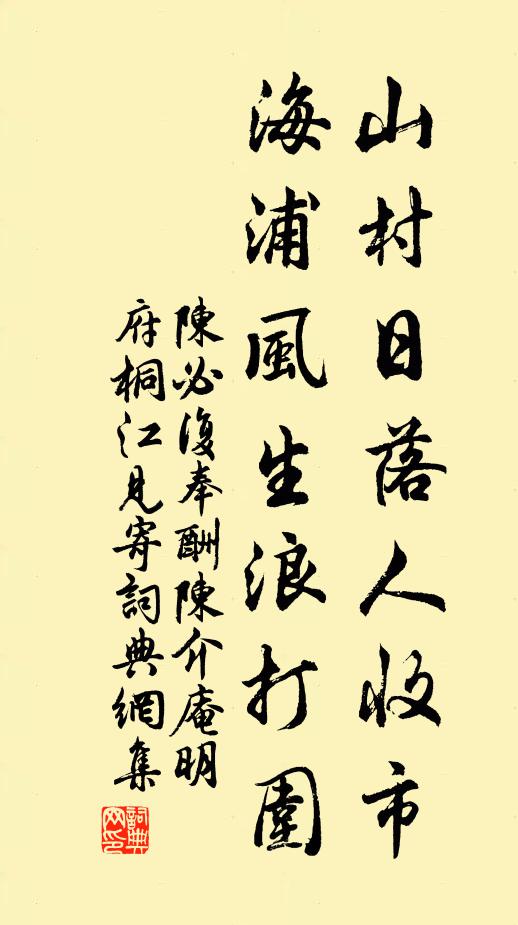 山村日落人收市
海浦風生浪打圍
陳必復奉酬陳介庵明
府桐江見寄詞典網集
詞典網印